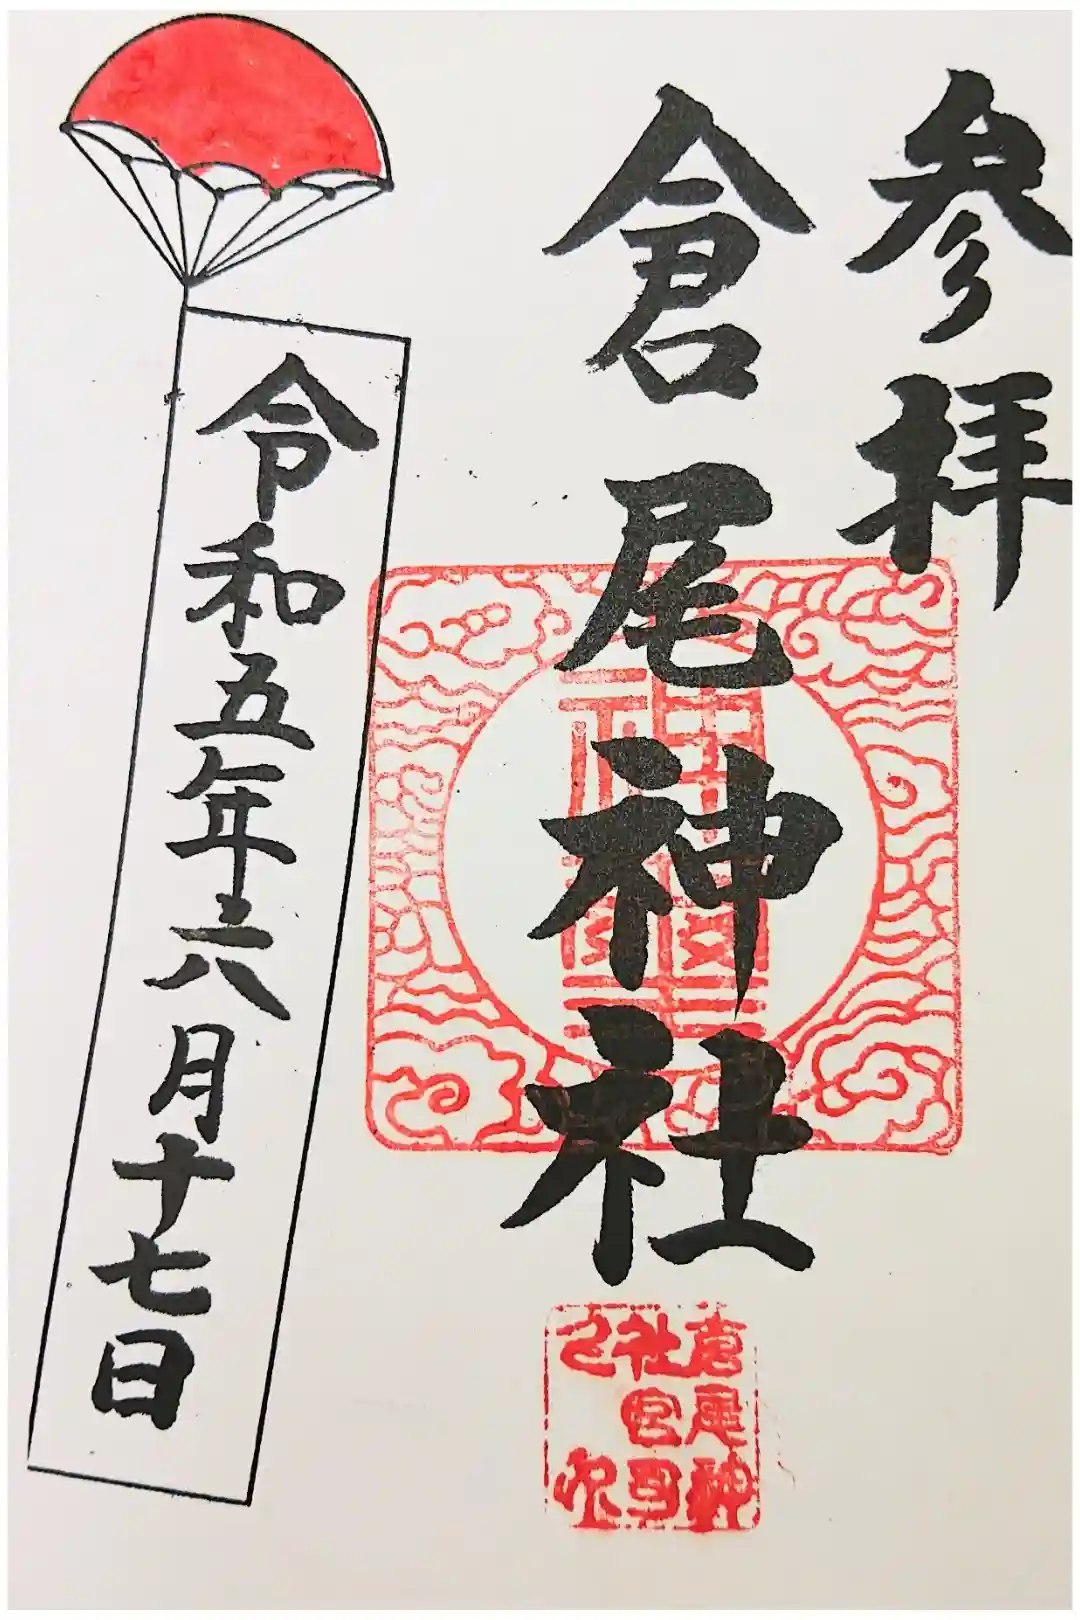 参拝
倉尾神社
令和五年六月十七日
倉尾神
社宮司
之印